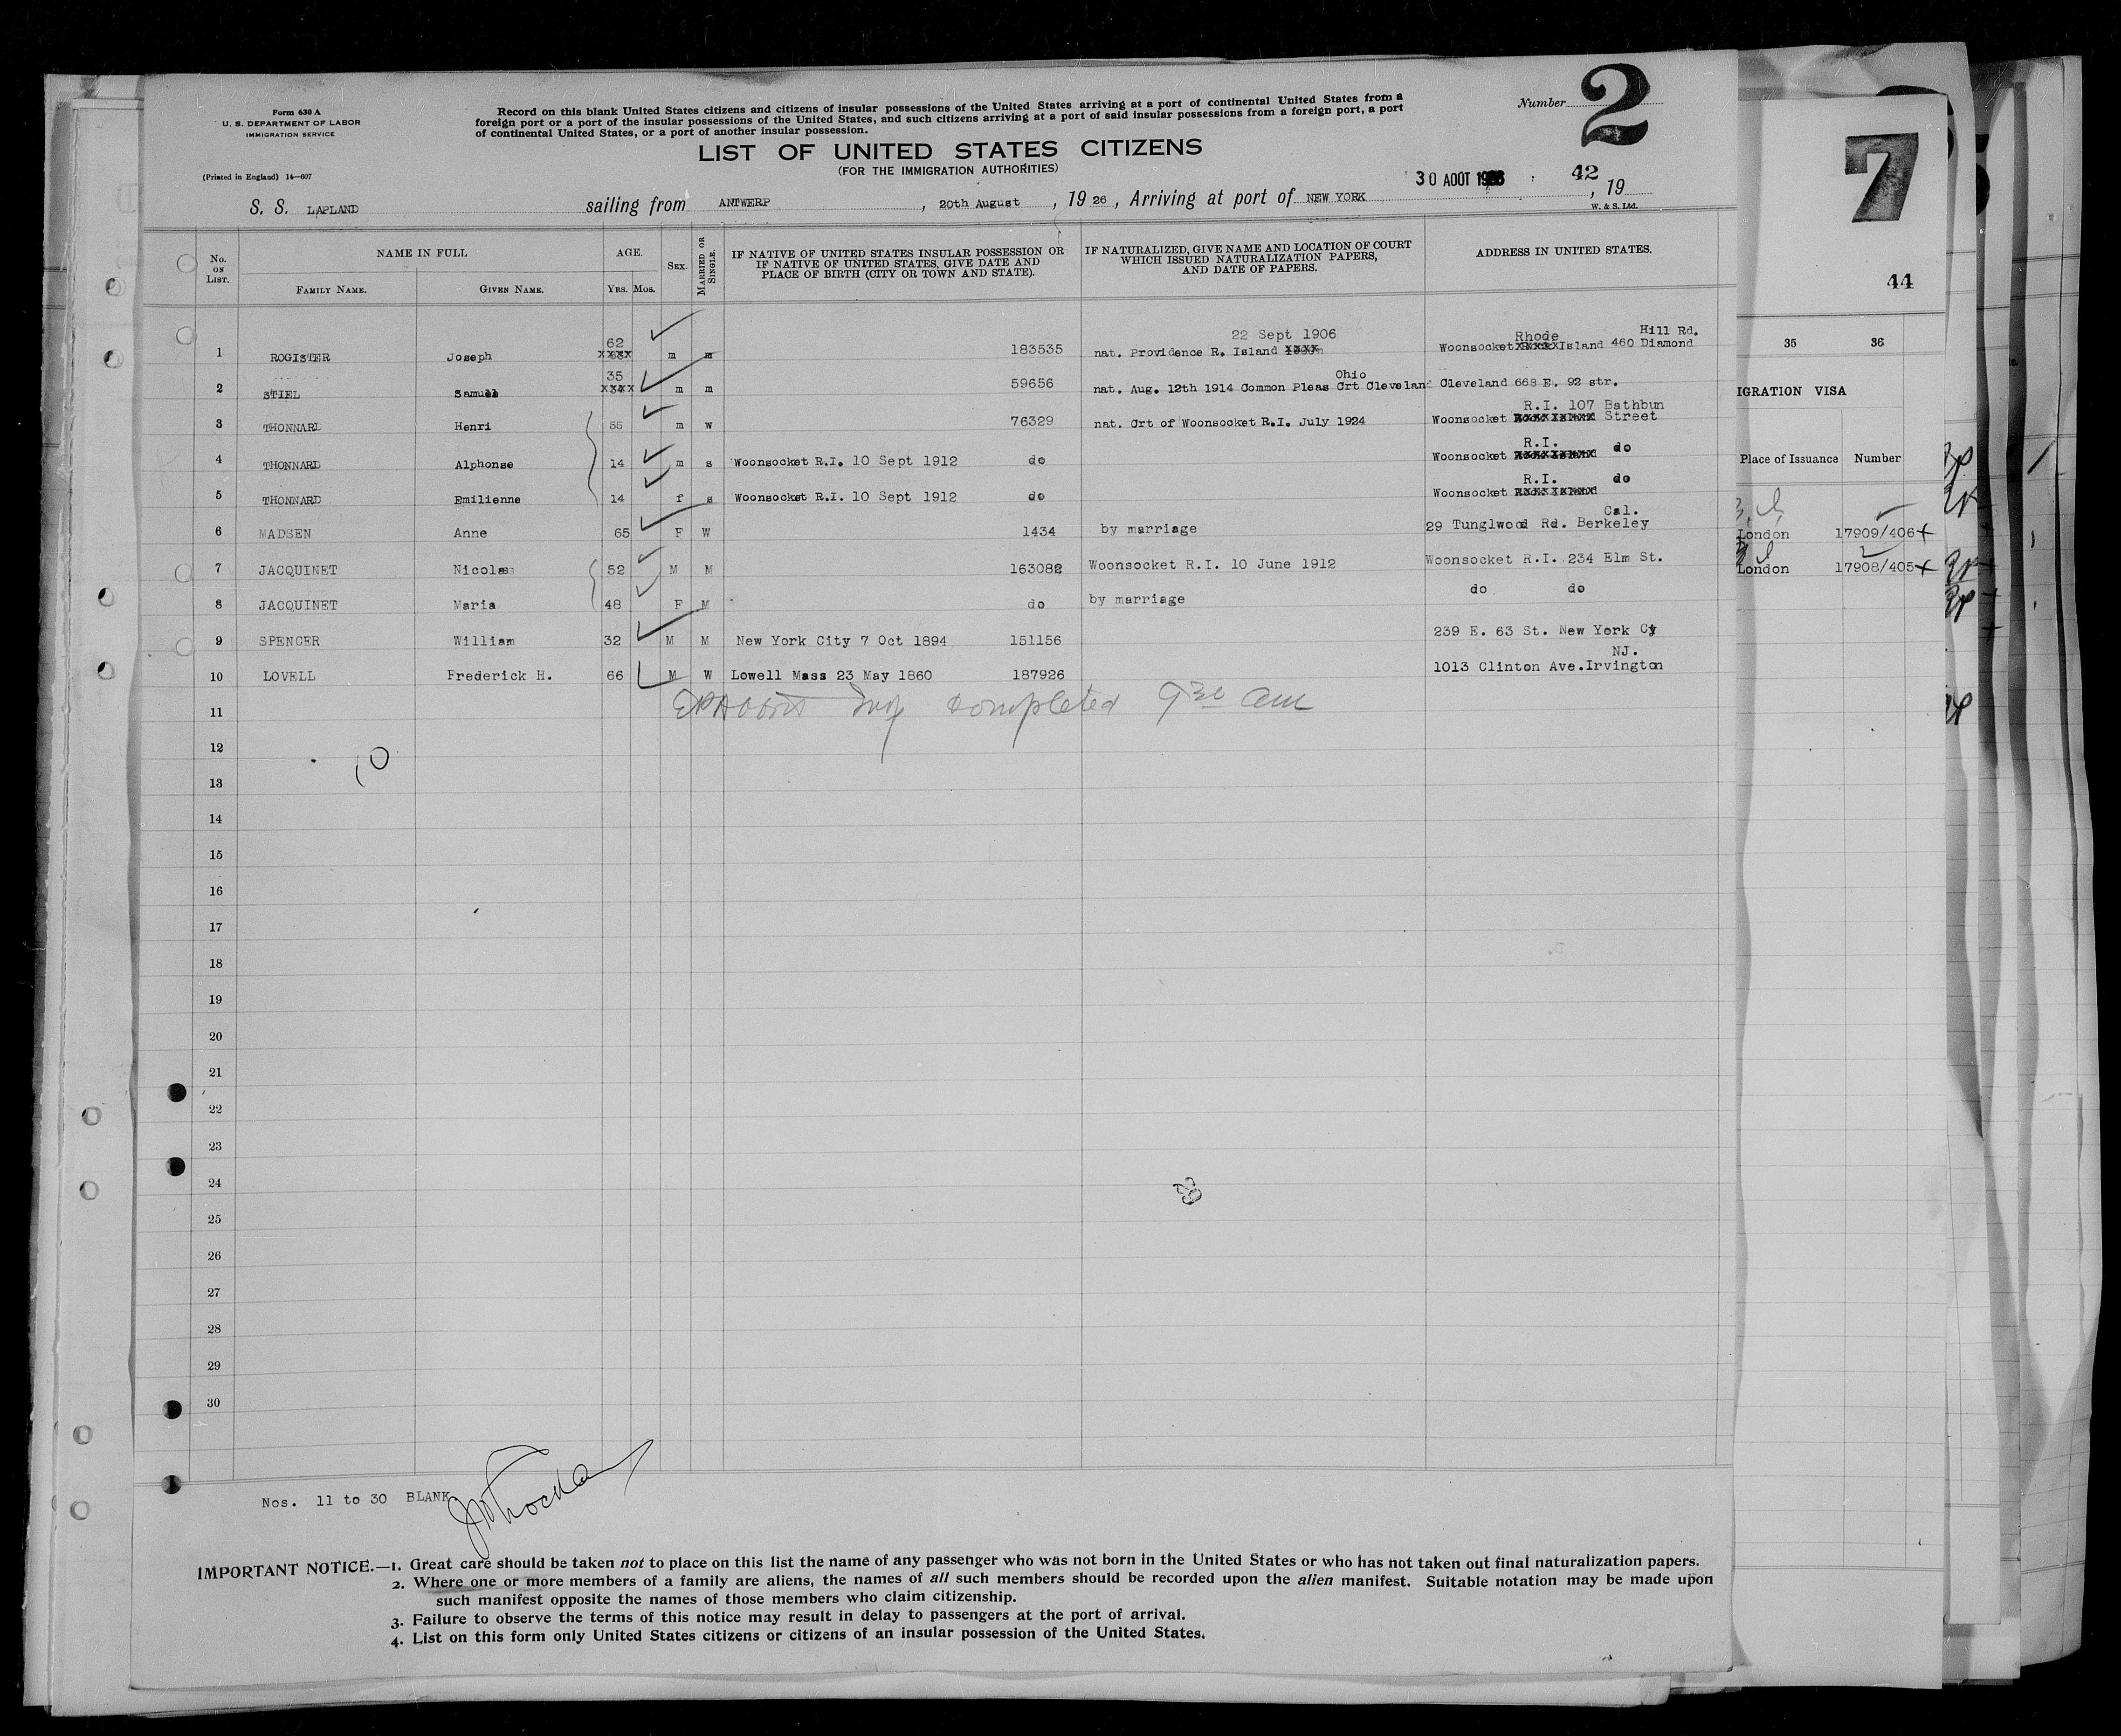 Form 630 A
U. S. DEPARTMENT OF LABOR
IMMIGRATION SERVICE
(Printed in England) 14—607
Record on this blank United States citizens and citizens of insular possessions of the United States arriving at a port of continental United States from a
foreign port or a port of the insular possessions of the United States, and such citizens arriving at a port of said insular possessions from a foreign port, a port
of continental United States, or a port of another insular possession.
Number 2
LIST OF UNITED STATES CITIZENS
(FOR THE IMMIGRATION AUTHORITIES)
30 AOOT 42
S. S. LAPLAND sailing from ANTWERP, 20th August, 19 26, Arriving at port of NEW YORK, 19
W. & S. Ltd.
No. ON LIST. NAME IN FULL FAMILY NAME. GIVEN NAME. AGE. YRS. MOS. SEX. MARRIED OR SINGLE. IF NATIVE OF UNITED STATES INSULAR POSSESSION OR IF NATIVE OF UNITED STATES, GIVE DATE AND PLACE OF BIRTH (CITY OR TOWN AND STATE). IF NATURALIZED, GIVE NAME AND LOCATION OF COURT WHICH ISSUED NATURALIZATION PAPERS, AND DATE OF PAPERS. ADDRESS IN UNITED STATES.
62 22 Sept 1906 Rhode Hill Rd.
1 ROGISTER Joseph m m 183535 nat. Providence R. Island Woonsocket Island 460 Diamond
35 Ohio
2 STIEL Samuel m m 59656 nat. Aug. 12th 1914 Common Pleas Crt Cleveland Cleveland 668 E. 92 str.
R.I. 107 Bathbun
3 THONNARD Henri 55 m w 76329 nat. Crt of Woonsocket R.I. July 1924 Woonsocket Street
R.I. do
4 THONNARD Alphonse 14 m s Woonsocket R.I. 10 Sept 1912 do Woonsocket
R.I. do
5 THONNARD Emilienne 14 f s Woonsocket R.I. 10 Sept 1912 do Woonsocket
Cal.
6 MADSEN Anne 65 F W 1434 by marriage 29 Tunglwood Rd. Berkeley
7 JACQUINET Nicolas 52 M M 163082 Woonsocket R.I. 10 June 1912 Woonsocket R.I. 234 Elm St.
8 JACQUINET Maria 48 F M do by marriage do do
9 SPENCER William 32 M M New York City 7 Oct 1894 151156 239 E. 63 St. New York Cy
NJ.
10 LOVELL Frederick H. 66 M W Lowell Mass 23 May 1860 187926 1013 Clinton Ave.Irvington
11 completed 9 30 am
12
10
13
14
15
16
17
18
19
20
21
22
23
24
25
26
27
28
29
30
Nos. 11 to 30 BLANK
IMPORTANT NOTICE.—1. Great care should be taken not to place on this list the name of any passenger who was not born in the United States or who has not taken out final naturalization papers.
2. Where one or more members of a family are aliens, the names of all such members should be recorded upon the alien manifest. Suitable notation may be made upon
such manifest opposite the names of those members who claim citizenship.
3. Failure to observe the terms of this notice may result in delay to passengers at the port of arrival.
4. List on this form only United States citizens or citizens of an insular possession of the United States.
7
44
35 36
IGRATION VISA
Place of Issuance Number
London 17909/406
London 17908/405